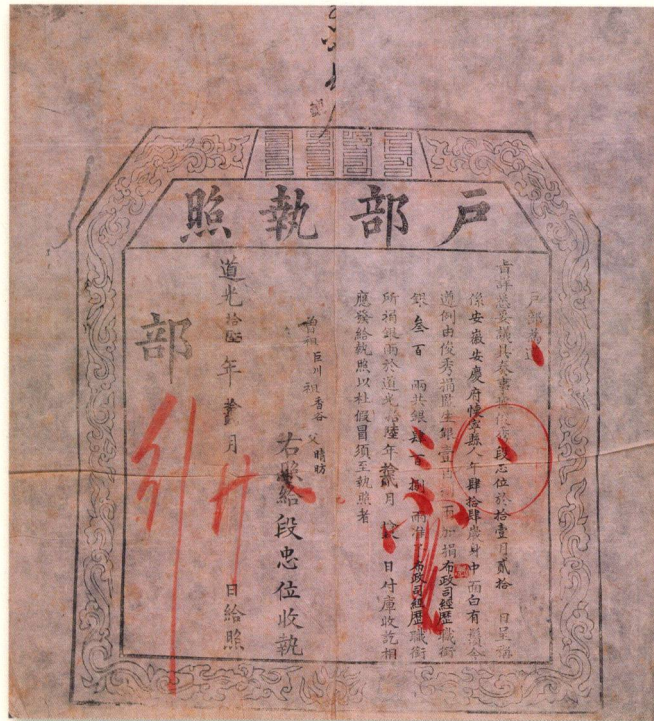 戶部執照
戶部為遵
旨詳議具奏事據俊秀段忠位於拾壹月貳拾 日呈稱
係安徽安慶府懷寧縣人年肆拾肆歲身中面白有鬚今
遵例由俊秀捐監生銀壹百 兩加捐布政司經歷職銜
銀叁百 兩共銀肆百捌 兩准 布政司經歷職銜
所捐銀兩於道光拾陸年拾貳月 日付庫收訖相
應發給執照以杜假冒須至執照者
曾祖巨川 祖香谷 父晴昉
右照給段忠位收執
道光拾 年 月 日給照
部